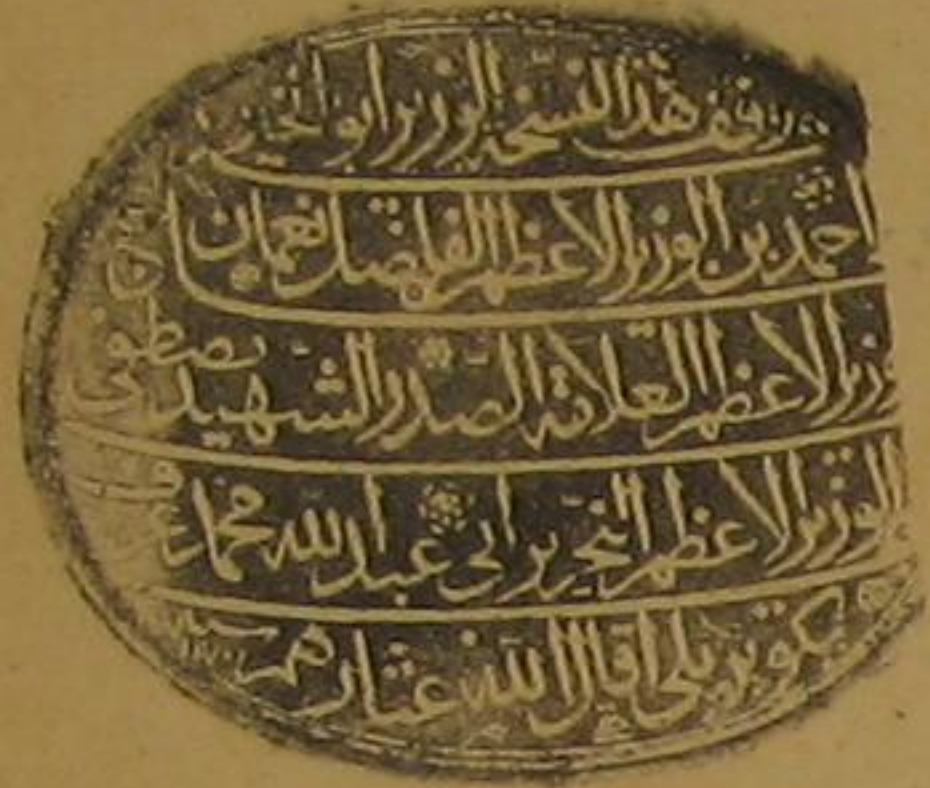 وقف هذا النسخة الوزير ابو الخير
احمد بن الوزير الاعظم الفاضل نعمان بن
وزير الاعظم العلامة الصدر الشهيد مصطفى بن
الوزير الاعظم النحرير ابي عبد الله محمد عرف
بكوپريلي اقال الله عثارهم سنه